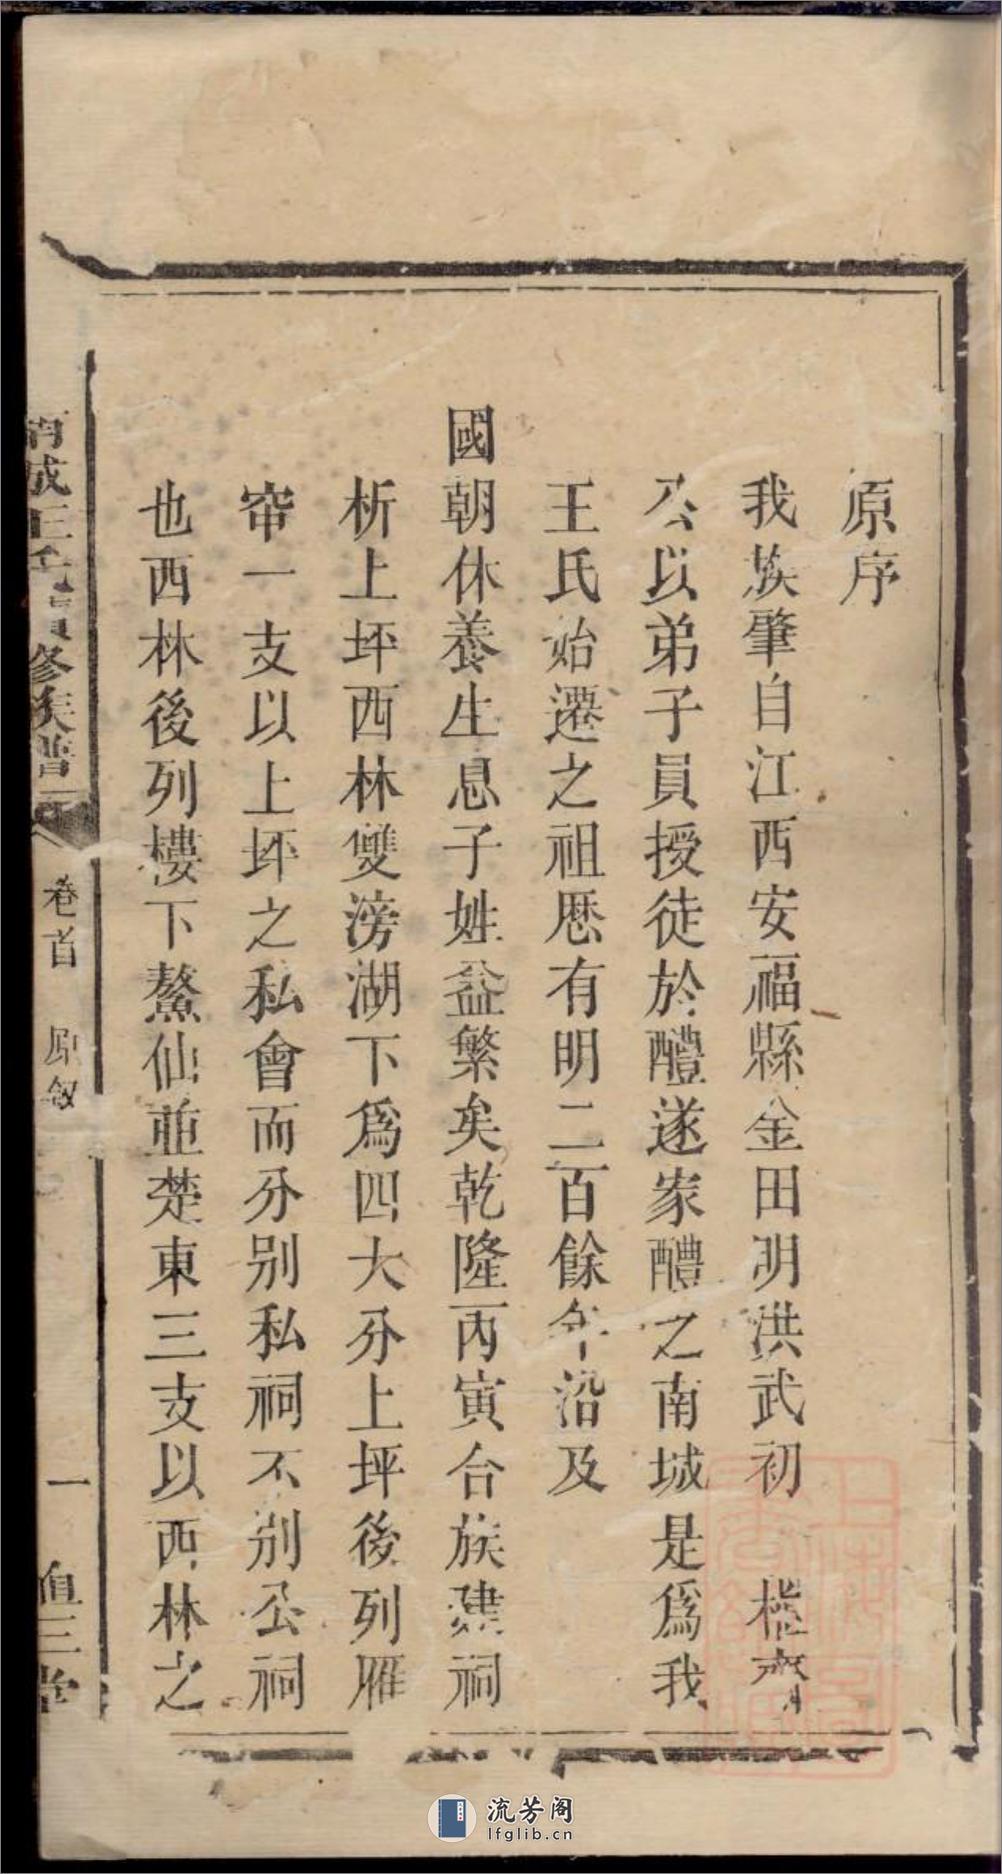 原序
我族肇自江西安福縣金田明洪武初　植齊
公以弟子員授徒於醴遂家醴之南城是爲我
王氏始遷之祖歷有明二百餘年沿及
國朝休養生息子姓益繁矣乾隆丙寅合族建祠
析上坪西林雙滂湖下爲四大分上坪後列雁
帘一支以上坪之私會而分别私祠不别公祠
也西林後列樓下鰲仙並楚東三支以西林之
南城王氏續修族譜
卷首　原敘
一
三堂
流芳阁
lfglib.cn